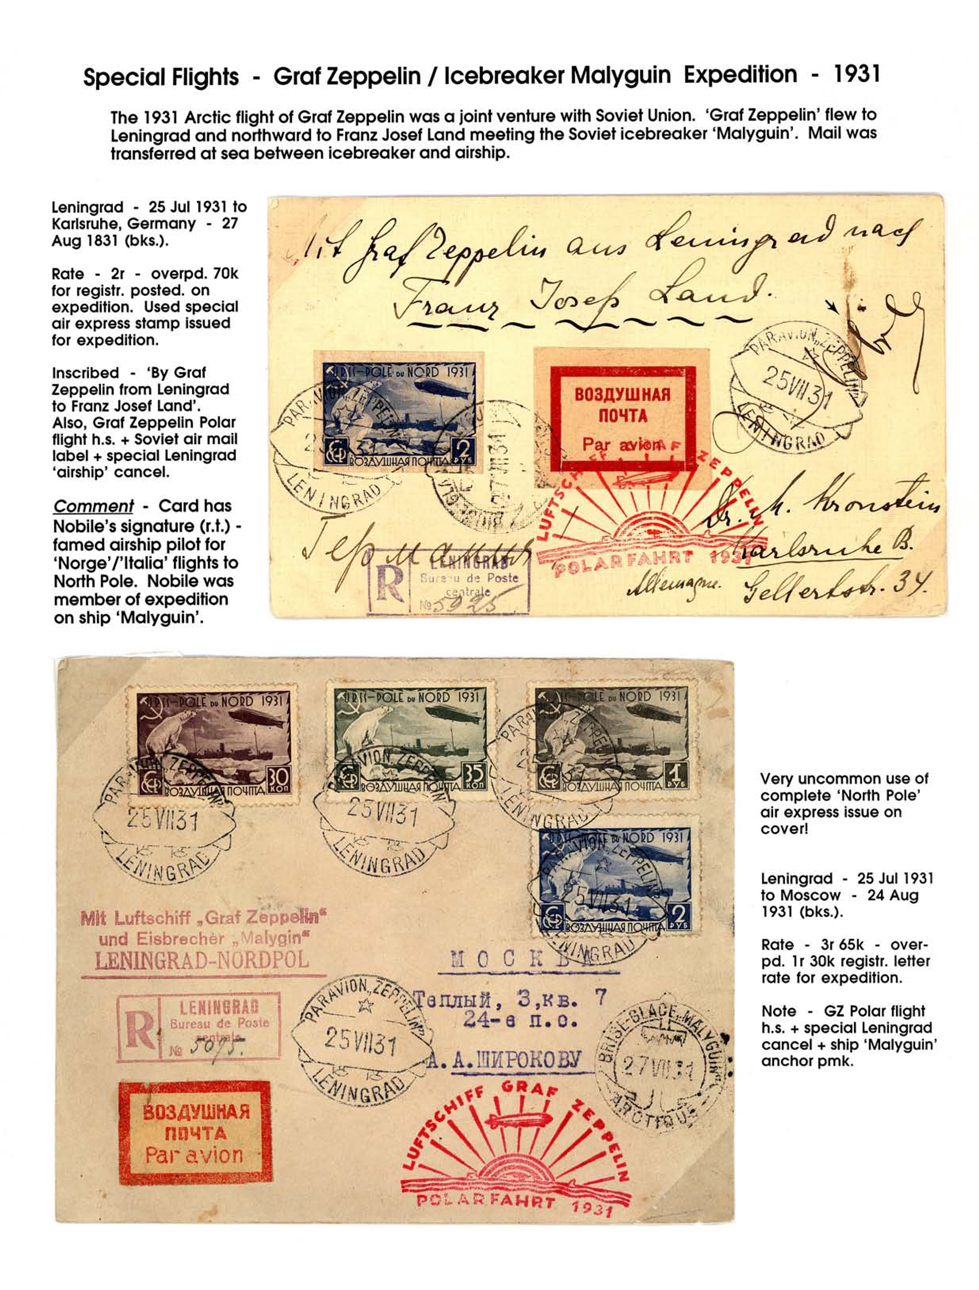 Special Flights - Graf Zeppelin / Icebreaker Malyguin Expedition - 1931
The 1931 Arctic flight of Graf Zeppelin was a joint venture with Soviet Union. 'Graf Zeppelin' flew to
Leningrad and northward to Franz Josef Land meeting the Soviet icebreaker 'Malyguin'. Mail was
transferred at sea between icebreaker and airship.
Leningrad - 25 Jul 1931 to
Karlsruhe, Germany - 27
Aug 1831 (bks.).
Rate - 2r - overpd. 70k
for registr. posted. on
expedition. Used special
air express stamp issued
for expedition.
Inscribed - 'By Graf
Zeppelin from Leningrad
to Franz Josef Land'.
Also, Graf Zeppelin Polar
flight h.s. + Soviet air mail
label + special Leningrad
'airship' cancel.
Comment - Card has
Nobile's signature (r.t.) -
famed airship pilot for
'Norge'/'Italia' flights to
North Pole. Nobile was
member of expedition
on ship 'Malyguin'.
Mit Graf Zeppelin aus Leningrad nach
Franz Josef Land.
PARAVION „ZEPPELIN"
25 VII 31
LENINGRAD
POLE DU NORD 1931
2 РУБ
ВОЗДУШНАЯ ПОЧТА
PARAVION „ZEPPELIN"
LENINGRAD
27 VII 31
ВОЗДУШНАЯ
ПОЧТА
Par avion
LUFTSCHIFF GRAF ZEPPELIN
POLARFAHRT 1931
Dr. M. Kronstein
Karlsruhe B.
Gellertstr. 34.
Allemagne.
Германия
R
LENINGRAD
Bureau de Poste
centrale
№ 5925
URSS-POLE DU NORD 1931
30 КОП
ВОЗДУШНАЯ ПОЧТА
URSS-POLE DU NORD 1931
35 КОП
ВОЗДУШНАЯ ПОЧТА
URSS-POLE DU NORD 1931
1 РУБ
ВОЗДУШНАЯ ПОЧТА
PARAVION „ZEPPELIN"
25 VII 31
LENINGRAD
PARAVION „ZEPPELIN"
25 VII 31
LENINGRAD
PARAVION „ZEPPELIN"
LENINGRAD
POLE DU NORD 1931
2 РУБ
ВОЗДУШНАЯ ПОЧТА
PARAVION „ZEPPELIN"
25 VII 31
LENINGRAD
Mit Luftschiff „Graf Zeppelin"
und Eisbrecher „Malygin"
LENINGRAD-NORDPOL
МОСКВА
Теплый, 3,кв. 7
24-е п.о.
А.А.ШИРОКОВУ
R
LENINGRAD
Bureau de Poste
centrale
№
PARAVION „ZEPPELIN"
25 VII 31
LENINGRAD
BRISE-GLACE „MALYGUIN"
27 VII 31
ARCTIQUE
ВОЗДУШНАЯ
ПОЧТА
Par avion
LUFTSCHIFF GRAF ZEPPELIN
POLARFAHRT 1931
Very uncommon use of
complete 'North Pole'
air express issue on
cover!
Leningrad - 25 Jul 1931
to Moscow - 24 Aug
1931 (bks.).
Rate - 3r 65k - over-
pd. 1r 30k registr. letter
rate for expedition.
Note - GZ Polar flight
h.s. + special Leningrad
cancel + ship 'Malyguin'
anchor pmk.